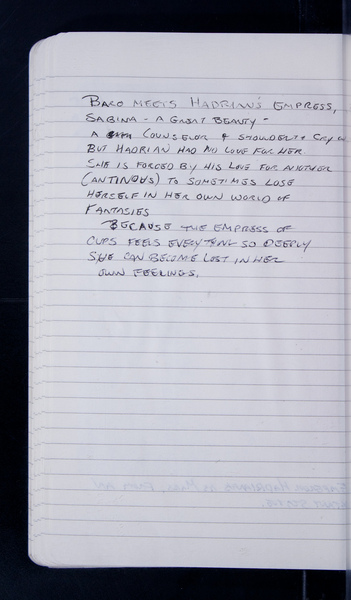 BALO MEETS HADRIAN'S EMPRESS,
SABINA - A GREAT BEAUTY -
A COUNSELOR & SHOULDER TO CRY ON
BUT HADRIAN HAD NO LOVE FOR HER.
SHE IS FORCED BY HIS LOVE FOR ANOTHER
(ANTINOUS) TO SOMETIMES LOSE
HERSELF IN HER OWN WORLD OF
FANTASIES
BECAUSE THE EMPRESS OF
CUPS FEELS EVERYTHING SO DEEPLY
SHE CAN BECOME LOST IN HER
OWN FEELINGS.